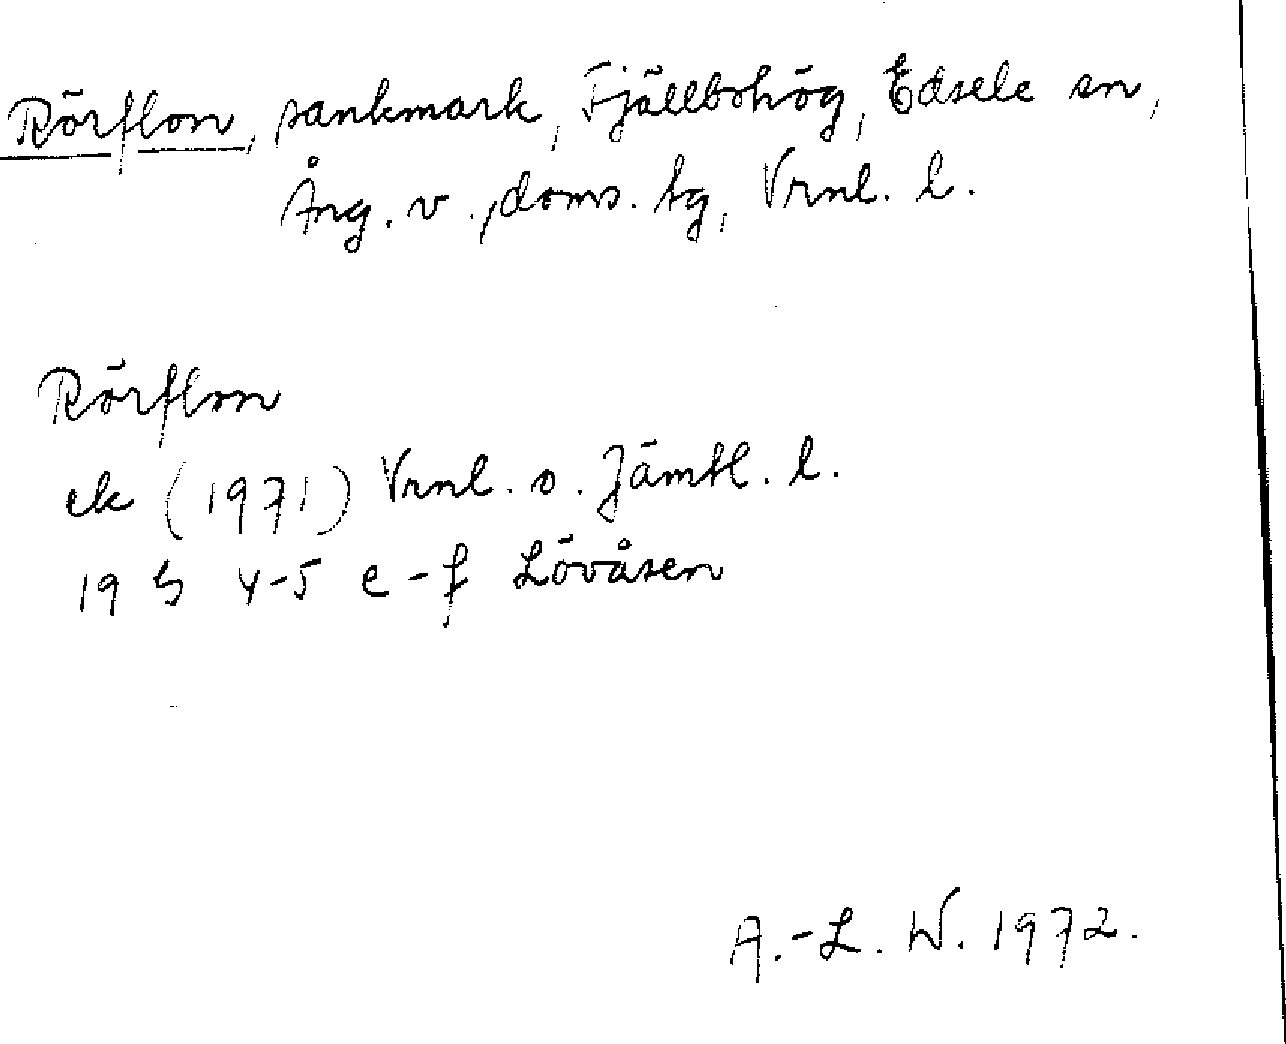 Rörflon, sankmark, Fjällbohög, Edsele sn,
Ång. v., doms. tg, Vrnl. l.
Rörflon
ek (1971) Vrnl. o. Jämtl. l.
19 G 4-5 e-f Lövåsen
A.-L. W. 1972.